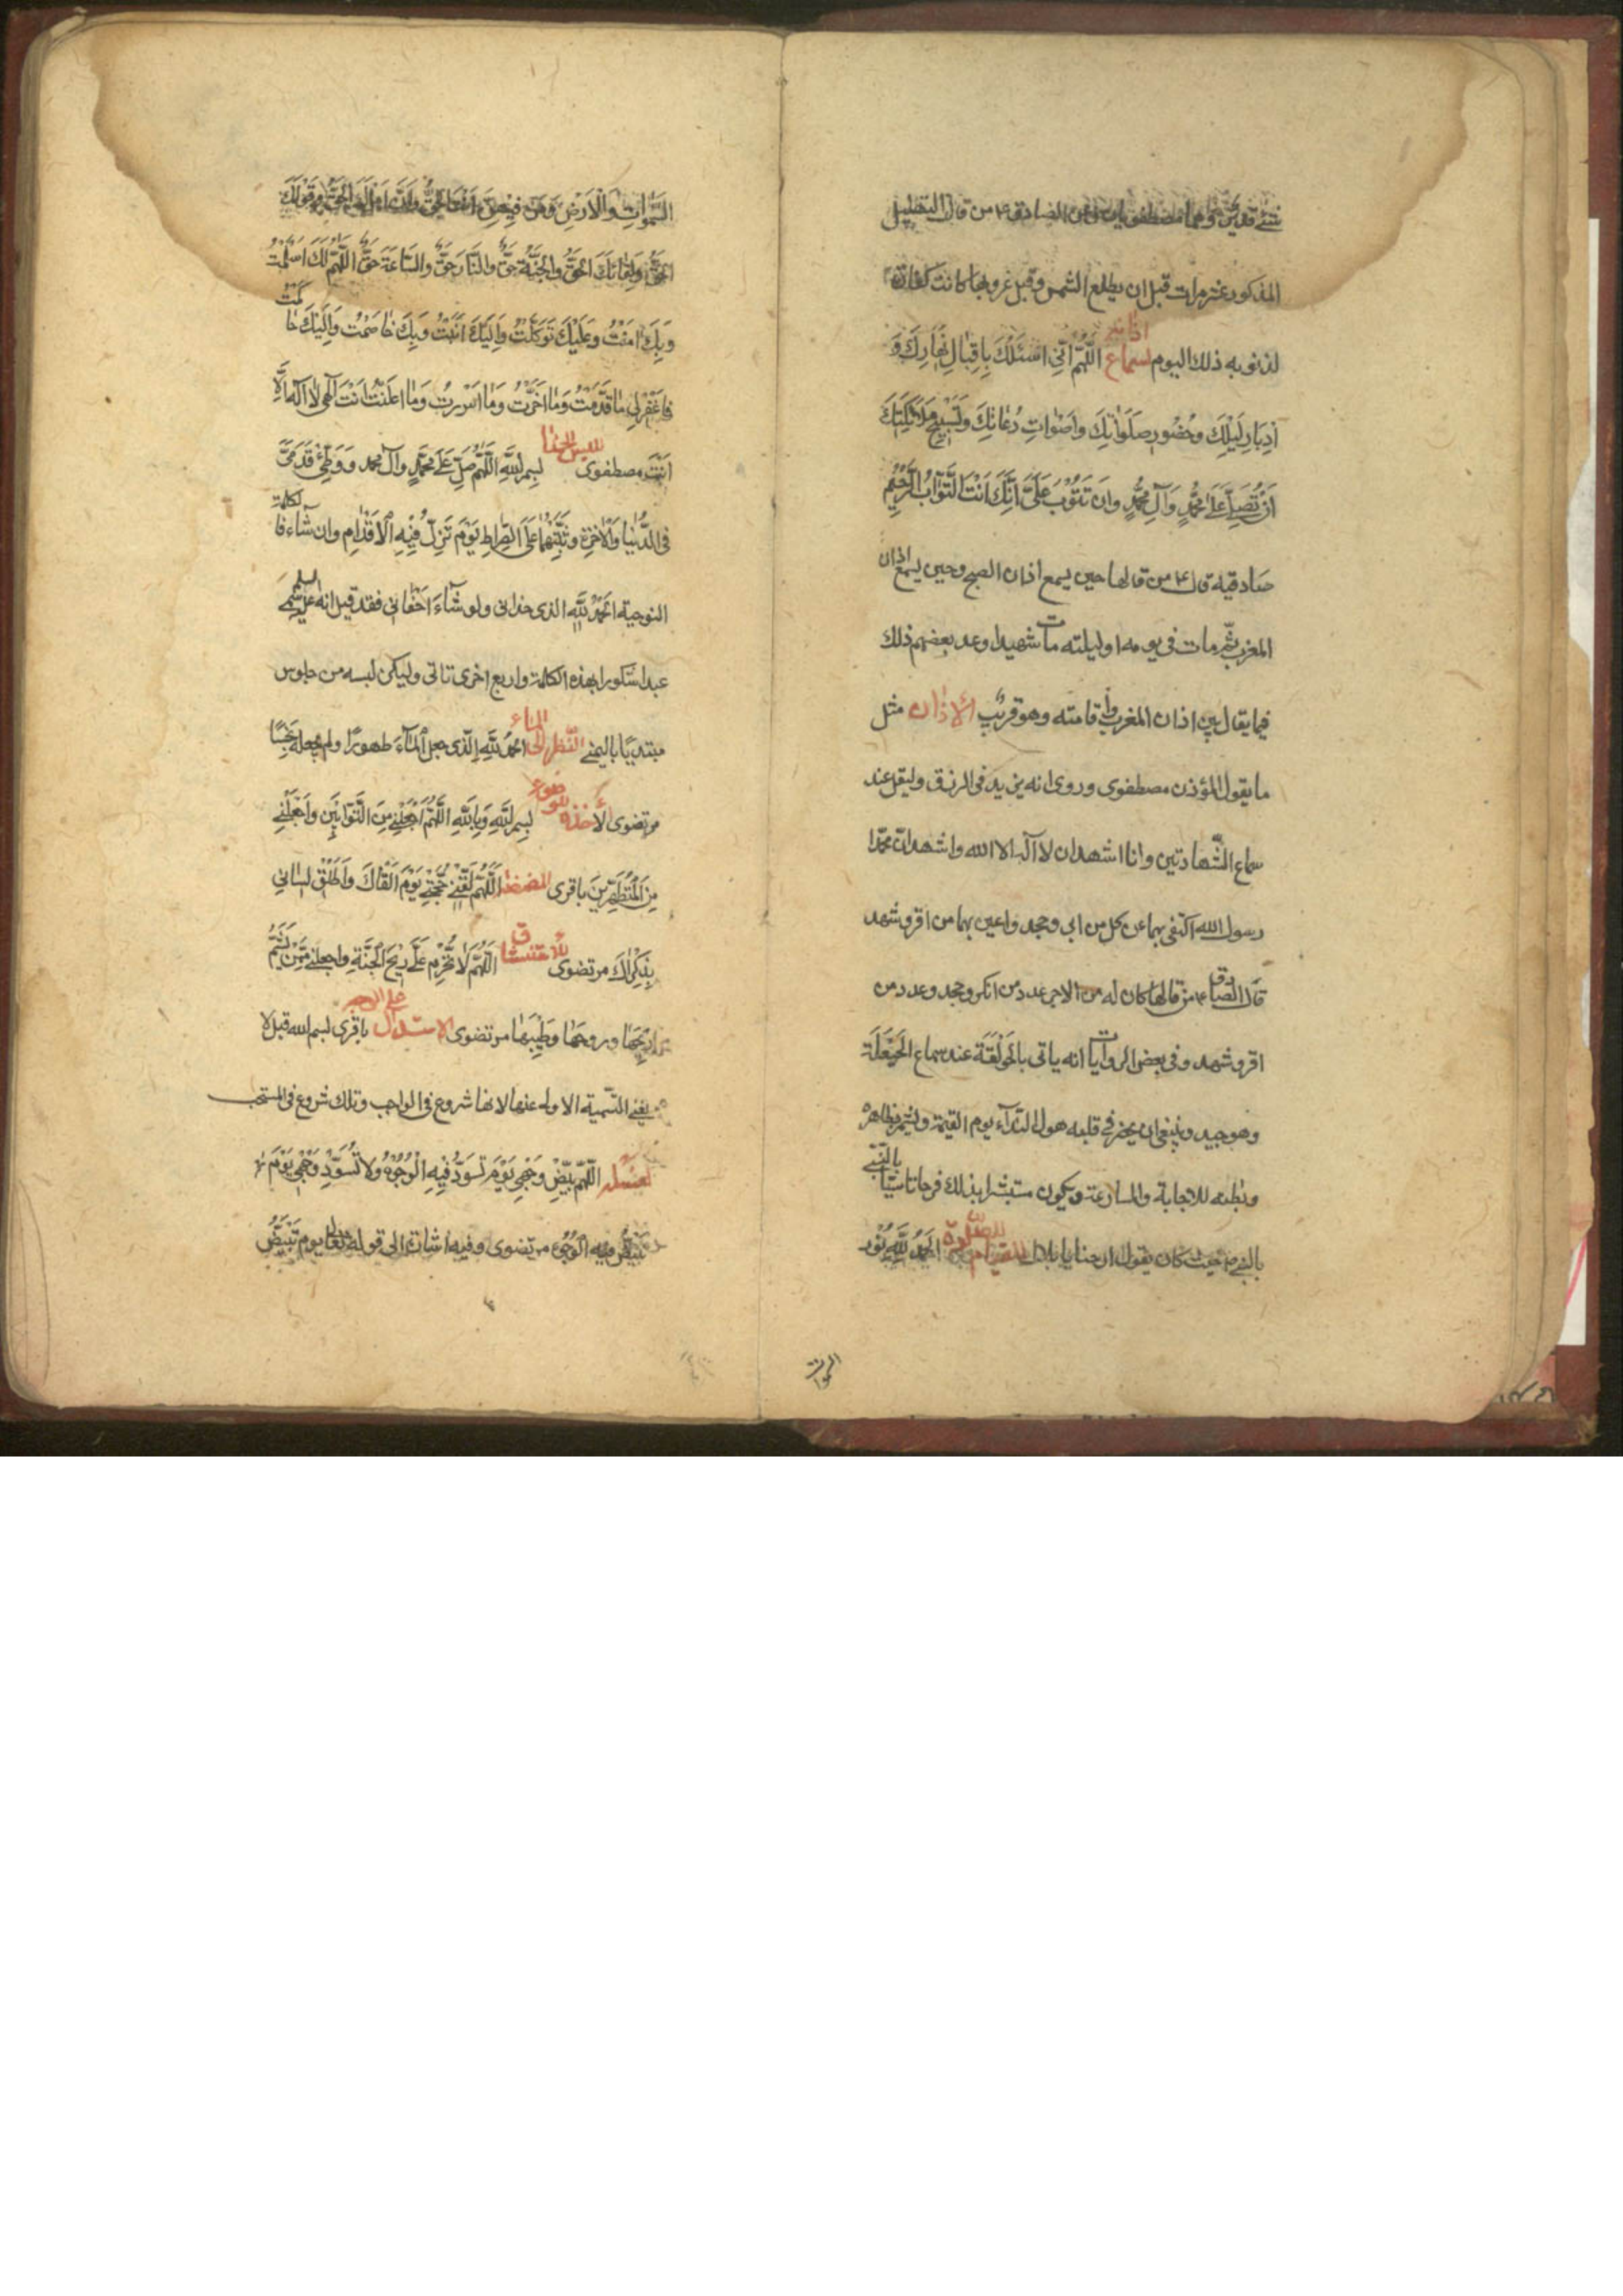 شئ قدير وهما مصطفويان وعن الصادق ع من قال التهليل
المذكور عشر مرات قبل ان يطلع الشمس وقبل غروبها كانت كفارة
لذنوبه ذلك اليوم لسماع اذانه اللّهُمَّ اِنّي اسْئَلُكَ بِاِقْبٰالِ نَهٰارِكَ وَ
اِدْبٰارِ لَيْلِكَ وحُضُورِ صَلَوٰاتِكَ وَاَصْوٰاتِ دُعٰاتِكَ وَتَسْبيحِ مَلٰائِكَتِكَ
اَنْ تُصَلِّيَ عَلىٰ مُحَمَّدٍ وَآلِ مُحَمَّدٍ وَان تَتُوبَ عَلَيَّ اِنَّكَ اَنْتَ التَّوّٰابُ الرَّحيُم
صادقيه قال ع من قالها حين يسمع اذان الصبح وحين يسمع اذان
المغرب ثمّ مات فى يومه او ليلته مات شهيدا وعد بعضهم ذلك
فيما يقال بين اذان المغرب واقامته وهو قريب الاذان مثل
ما يقول المؤذن مصطفوى وروى انه يزيد فى الرزق وليقل عند
سماع الشّهادتين وانا اشهد ان لا آله الا الله واشهد انّ محمّدا
رسول الله اكتفى بهما عن كل من ابى وجحد واعين بهما من اقر وشهد
قال الصّادق ع من قالها كان له من الاجر عدد من انكر وجحد وعدد من
اقر وشهد وفى بعض الروايات انه ياتى بالحَوْلَقَة عند سماع الحَيْعَلَة
وهو جيد وينبغى ان يحضر فى قلبه هول النّداء يوم القيمة ويشمر بظاهره
وبٰطنه للاجابة والمسارعة ويكون مستبشرا بذلك فرحا تاسّيًا بالنّبى
بالنبى ص حيث كان يقول ارحنا يا بلال للقيام للصّلوة الحَمْدُ لِلّٰهِ نُور
السّمواتِ
السَّمٰوٰاتِ وَالْاَرْضِ وَمَن فيهِنَّ اَنْتَ الحَقُّ وَقَوْلُكَ
الحَقُّ وَلِقٰائُكَ الحَقُّ والجَنَّة حَقٌّ والنَّار حَقٌّ والسّاعَة حَقٌّ اللّهُمَّ لَكَ اَسْلَمْتُ
وَبِكَ اٰمَنْتُ وعَلَيْكَ تَوَكَّلْتُ وَاِلَيْكَ اَنَبْتُ وَبِكَ خٰاصَمْتُ وَاِلَيْكَ حٰاكَمْتُ
فَاغْفِرْلي مٰا قَدَّمْتُ وَمٰا اَخَّرْتُ وَمٰا اَسْرَرْتُ وَمٰا اعلَنْتُ انْتَ اِلٰهي لٰا اِلٰهَ اِلَّا
اَنْتَ مصطفوى للبس الحذا بِسمِ اللّٰهِ اللّٰهُمَّ صَلِّ عَلىٰ مُحَمَّدٍ وَآل محمد وَوَطِّئ قَدَمَيَّ
فى الدُّنْيا وَالْاٰخِرَة وَثَبِّتْهُمٰا عَلَى الصِّراطِ يَوْمَ تَزِلّ فيهِ الْاَقْدامِ وان شٰاء فالكلمة
النوحية الحَمْدُ لِلّٰهِ الذى حذانى ولو شٰاءَ اَحْفٰانى فقد قيل انه عليه السلم سمى
عبدا شكورا بهذه الكلمة واربع اخرى تاتى وليكن لبسه من جلوس
مبتديًا باليمنى النّظر الى الماء الحَمْدُ لِلّٰهِ الّذى جعل الْمٰاءَ طهورًا ولم يجعله نجسًا
مرتضوى لأخذه للوضوء بِسمِ اللّٰهِ وَبِاللّٰهِ اَللّٰهُمَّ اجْعَلْني مِنَ التَّوّابِين وَاجْعَلْني
مِنَ الْمُتَطَهِّرينَ باقرى للمضمضة اَللّٰهُمَّ لَقِّنّي حُجَّتي يَوْمَ اَلْقٰاكَ وَاَطْلِقْ لِسٰاني
بِذِكْرٰكَ مرتضوى للاستنشاق اَللّٰهُمَّ لٰا تُحَرِّمْ عَلَيَّ رِيْحَ الْجَنَّةِ واجعلنى مِمَّنْ يَشَمُّ
رِيحَهٰا وروحَهٰا وَطِيْبَهٰا مرتضوى الاستدلال على الوجه باقرى بسم الله قبل لا
يغنى التّسمية الاوله عنها لانها شروع فى الواجب وتلك شروع فى المستحب
لغسله اَللّٰهُمَّ بَيِّضْ وَجْهي يَوْمَ تَسْوَدُّ فيهِ الْوُجُوْهُ ولٰا تُسَوِّدْ وَجْهي يَوْمَ
تَبْيَضُّ فيه الْوُجُوهُ مرتضوى وفيه اشارة الى قوله تعالى يوم تَبْيَضُّ